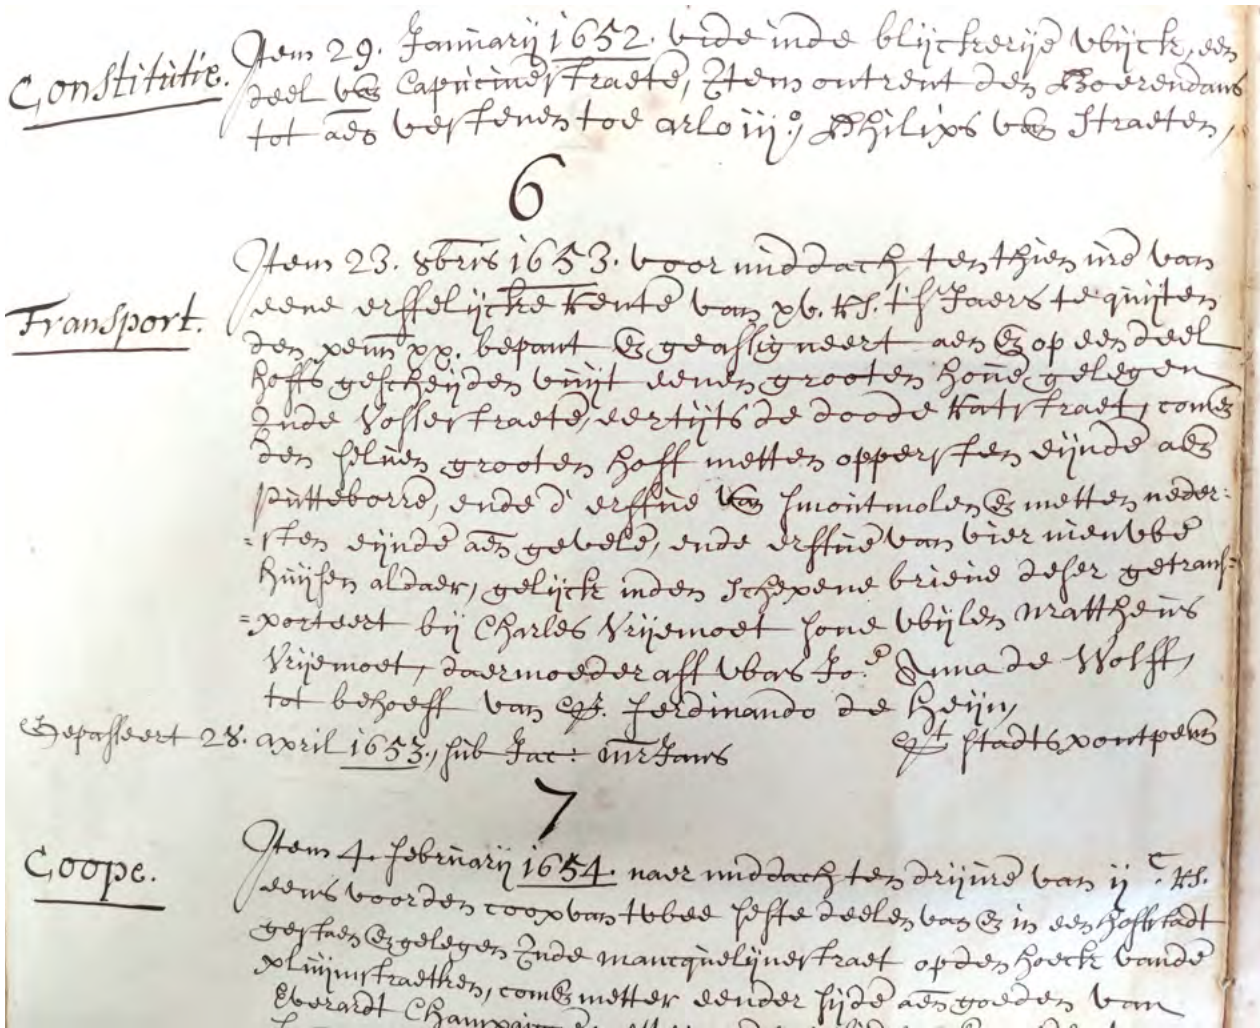 Constitutie. Item 29. Januarij 1652. vide inde blijckerije wijck, een
deel van Capucinestraete, Item ontrent den Boerendans
tot aen vestenen toe arlo iij.o, Philips van Straeten,
6
Item 23. 8bris 1653. voor middach, ten thien ure van
Transport. eene erffelijcke Rente van xv. Rs. t'sJaers te quijten
den penn xx. bepant en geassigneert aen en op een deel
hoffs gescheijden vuijt eenen grooten hove gelegen
Inde Vosserstraete, eertijts de doode katstraet, comen
den selven grooten hoff metten oppersten eijnde aen
putteborre, ende d'erffve van smoutmolen en metten neder:
=sten eijnde aen gevele, ende erffve van vier nieuwe
huijsen aldaer, gelijck inden schepene brieve deser getrans=
=porteert bij Charles Vrijemoet sone wijlen Mattheus
Vrijemoet, daer moeder aff was Jo.e Anna de Wolff,
tot behoeff van Ferdinando de Heijn,
Gepasseert 28. april 1653, sub Jac: Jans stadts pontpenn
7
Item 4. Februarij 1654. naer middach ten drij ure van ij c. Rs.
Coope. eens voorden coop van twee seste deelen van en in een hoffstadt
gestaen en gelegen Inde mancquelijnestraet opden hoeck vande
pluijmstraetken, comen metter eender sijde aen goeden van
Everardt